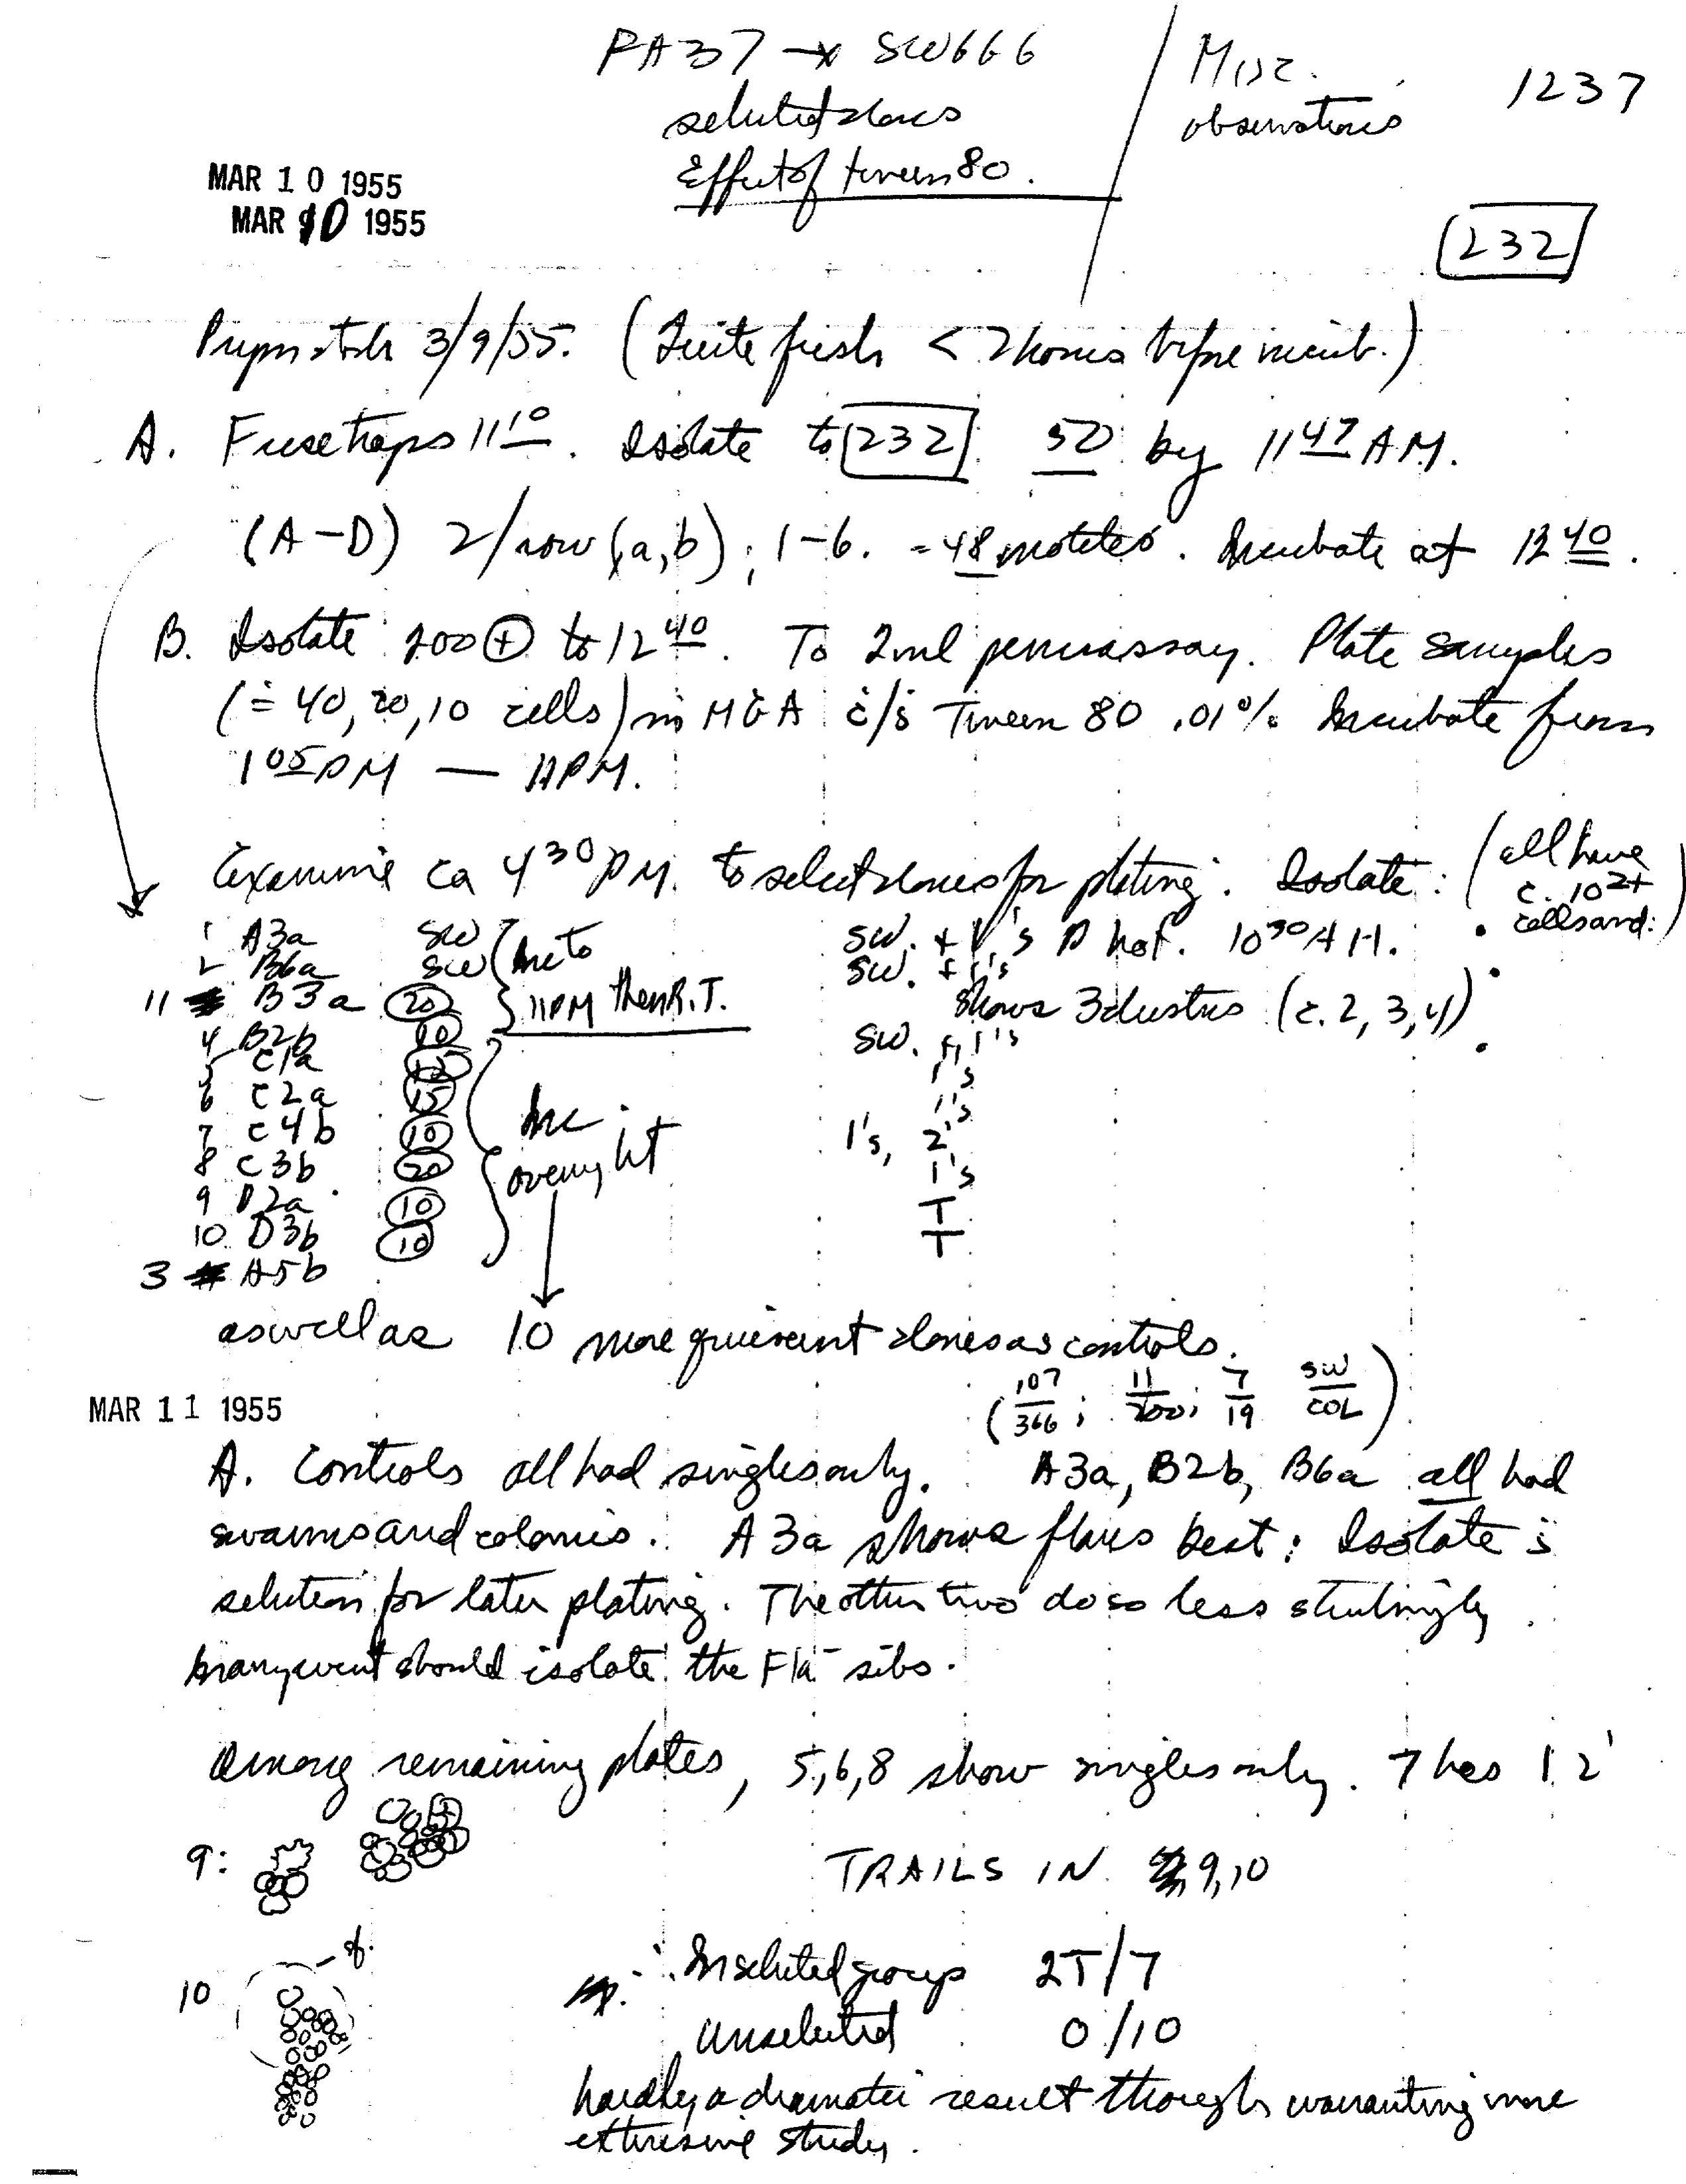 PA37 —x SW666
Misc.
1237
selected clones
observations
Effect of tween 80.
MAR 10 1955
MAR 10 1955
232
3/9/55. (Quite fresh < 2 hours before incub.)
A. Fuse traps 11 10. Isolate to 232 50 by 11 47 AM.
(A-D) 2/row (a,b); 1-6. = 48 motiles. Incubate at 12 40.
B. Isolate 200 ⊕ to 12 40. To 2ml pennassay. Plate samples
(≐ 40, 20, 10 cells) in MGA c̄/s̄ Tween 80 .01% Incubate from
1 05 PM — 11PM.
Examine ca 4 30 PM. to select clones for plating. Isolate: (all have
c. 10 2+
cells and:)
1 A3a SW Inc to SW. + 1's 10 30 AM.
2 B6a SW 11PM then R.T. SW. + 1's
11 B3a 20 Shows 3 clusters (c. 2, 3, 4)
4 B2b 10 SW. + 1's
5 C1a 1's
6 C2a 15 Inc 1's
7 C4b 10 overnight 1's, 2's
8 C3b 20 1's
9 D2a 10 T
10. D3b 10 T
3 A5b
as well as 10 more quiescent clones as controls.
(107/366; 11/200; 7/19 SW/COL)
MAR 11 1955
A. Controls all had singles only. A3a, B2b, B6a all had
swarms and colonies. A3a shows flares best: Isolate s̄
selection for later plating. The other two do so less strikingly
In any event should isolate the Fla⁻ sibs.
Among remaining plates, 5,6,8 show singles only. 7 has 1 2'
9:
TRAILS IN 9,10
10
∴ In selected group 2T/7
Unselected 0/10
hardly a dramatic result though warranting more
extensive study.